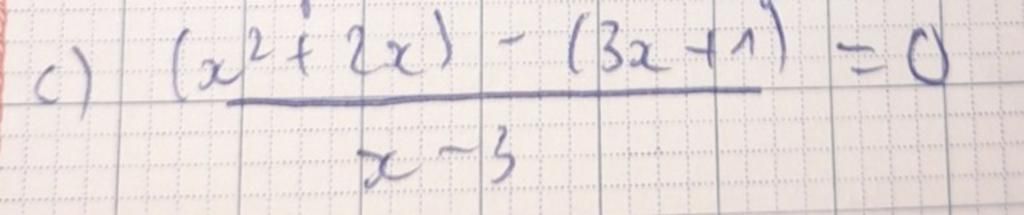 c) (x² + 2x) - (3x + 1) = 0
x - 3